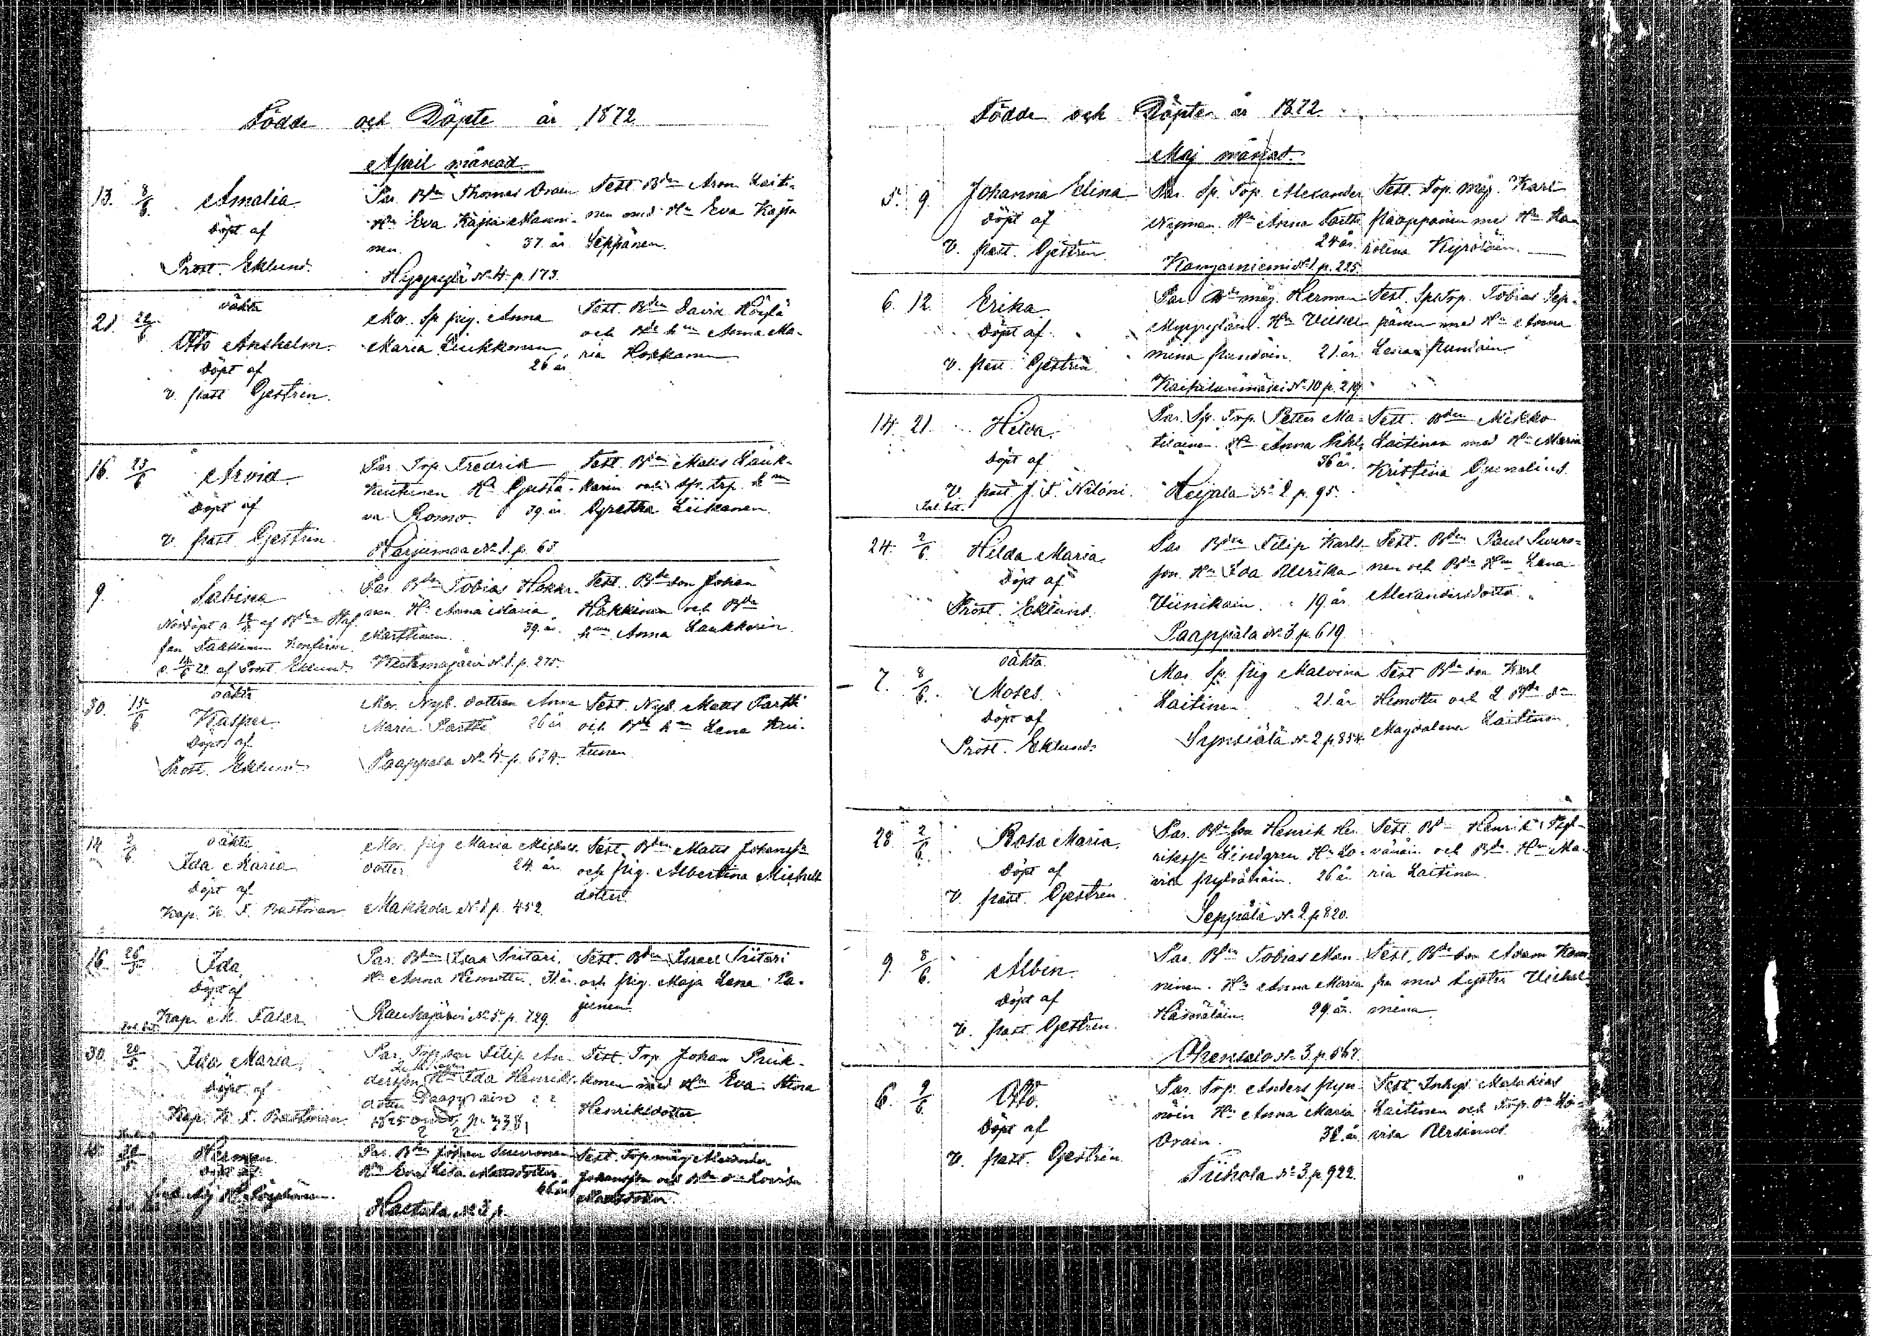 Födde och Döpte år 1872
April månad
13. 8/6. Amalia
Döpt af
Prost. Eklund.
Par. Bdn Thomas Orain
Hu Eva Kajsa Makko-
nen. 37 år
Hyypyylä No 4 p. 173.
Test. Bdn Aron Laiti-
nen med Hu Eva Kajsa
Seppänen.
21. oäkta
Otto Anshelm.
Döpt af
v. past. Gestrin.
Mor. Sp. pig. Anna
Maria Liukkonen
26 år
Test. Bdn David Köylä
och Bde hun Anna Ma-
ria Hokkanen
16. Arvid
Döpt af
v. past. Gestrin
Par. Trp Fredrik
Kautunen Hu Gusta-
va Romo. 39. år.
Harjumaa No 1. p. 65
Test. Bdn Matts Lauk-
karin och sp. trp. hun
Gretha Liikanen.
9. Sabina
Par. Bdn Tobias Hokka-
nen Hu Anna Maria
Marttinen. 39. år.
No 1. p. 275.
Test. Bde son Johan
Häkkinen och Bde
hun Anna Laukkarin.
30. oäkta
Kasper
Döpt af
Prost. Eklund
Mor. Nyb. dottren Anna
Maria Partti 26 år
Paappala No 4. p. 634.
Test. Nyb. Matts Partti
och Bde hu Lena Kru-
tunen
14. 2/6 oäkta
Ida Maria
Döpt af
Kap. K. F. Bastman
Mor. pig Maria Michels-
dotter. 24 år
Makkola No 1 p. 452.
Test. Bdn Matts Johanss:n
och pig. Albertina Michels
dotter
16. 26/5 Ida
Döpt af
Kap. M. Faler
Par. Bdn Esaa Siitari,
Hu Anna Himottu. 31 år.
Rauhajärvi No 5. p. 729.
Test. Bdn Israel Siitari
och pig. Maja Lena Pa-
junen
30. 20/5 Ida Maria,
Döpt af
Kap. K. F. Bastman.
Par. Trp son Filip An-
dersson Hu Ida Henriks
dotter Paappain
p. 338,
Test. Trp Johan Pruik-
konen med Hu Eva Stina
Henriksdotter
Herman
Döpt af
Par. Bdn Johan Suuronen
Hu Eva Lisa Mattsdotter
46 år
Haetala No 3 p.
Test. Trp måg Alexander
Johansson och Bdn dr Lovisa
Mattsdotter.
Födde och Döpte år 1872.
Maj månad.
5. 9. Johanna Elina
Döpt af
V. past. Gestrin.
Par. Sp. Trp. Alexander
Nyman. Hu Anna Partti
24 år.
Kangasniemi No 1. p. 225.
Test. Trp. måg. Karl
Paappanen med Hu Ka-
rolina Kyröläin.
6. 12. Erika
Döpt af
v. past. Gestrin
Par. Bde måg. Herman
Myyryläin. Hu Vilhel-
mina Pundain. 21 år.
No 10 p. 219.
Test. Sp. Trp. Tobias Sep-
pänen med Hu Anna
Lena Pundain.
14. 21. Helva.
Döpt af
V. past. J. F. Nilóni.
Par. Sp. Trp. Petter Ma-
tilainen. Hu Anna
36 år.
Heijala No 2 p. 95.
Test. Bdn Mikko
Laitinen med Hu Maria
Kristina Grenalind.
24. 2/6 Hilda Maria
Döpt af
Prost. Eklund.
Par. Bdn Filip Karls-
son. Hu Ida Ulrika
Viinikain. 19. år
Paappala No 3. p. 619.
Test. Bdn Paul Suuro-
nen och Bde Hun Lena
Alexandersdotter.
7. 8/6. oäkta
Moses.
Döpt af
Prost. Eklund
Mor. Sp. pig Malvina
Laitinen. 21. år
Synsiälä No 2 p 854.
Test Bde son Karl
Himottu och L Bde dr
Magdalena Laitinen.
28. 2/6. Rosa Maria.
Döpt af
V. past. Gestrin.
Par. Bde son Henrik Hen-
rikss:n Lindgren Hu Lo-
visa Pylvänäin. 26 år.
Seppälä No 2 p 820.
Test. Bde Henrik Pyl-
vänäin och Bde Hun Ma-
ria Laitinen.
9. 8/6. Albin.
Döpt af
V. past. Gestrin.
Par. Bdn Tobias Man-
ninen. Hu Anna Maria
Hämäläin. 29 år.
Ohensalo No 3. p. 567.
Test. Bde son Adam Kom
pa med syster Vilhel-
mina
6. 9/6. Otto.
Döpt af
V. past. Gestrin
Par. Trp. Anders Pyn-
nöin Hu Anna Maria
Orain. 38. år
Tiihola No 3. p. 922.
Test. Inhys. Malakias
Laitinen och Trp. dr Lo-
visa Ursinus.